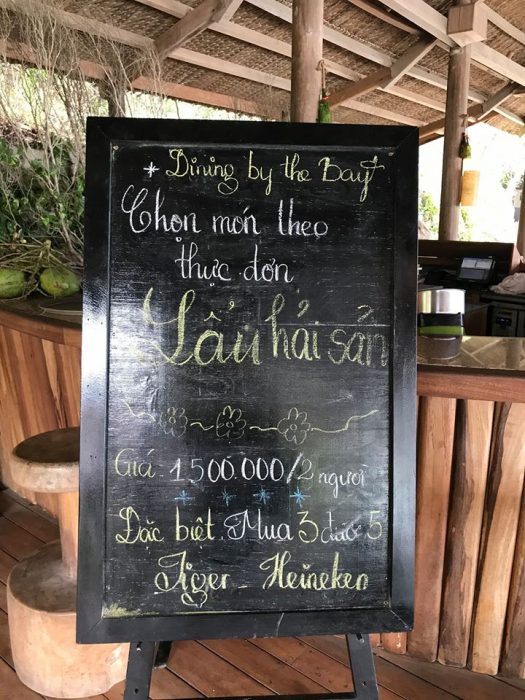 Dining by the Bay
Chọn món theo
thực đơn
Lẩu hải sản
Giá 1500.000/2 người
Đặc biệt Mua 3 được 5
Tiger - Heineken